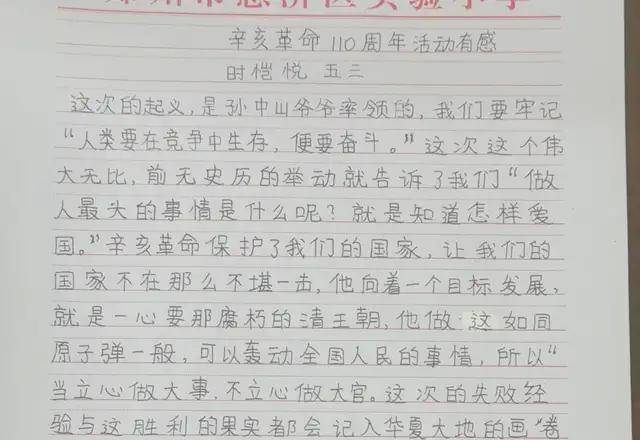 郑州市惠济区实验小学
辛亥革命 110周年活动有感
时恺悦 五三
这次的起义，是孙中山爷爷率领的，我们要牢记
“人类要在竞争中生存，便要奋斗。”这次这个伟
大无比，前无史历的举动就告诉了我们“做
人最大的事情是什么呢？就是知道怎样爱
国。”辛亥革命保护了我们的国家，让我们的
国家不在那么不堪一击，他向着一个目标发展，
就是一心要那腐朽的清王朝，他做这如同
原子弹一般，可以轰动全国人民的事情，所以“
当立心做大事，不立心做大官。这次的失败经
验与这胜利的果实都会记入华夏大地的画卷